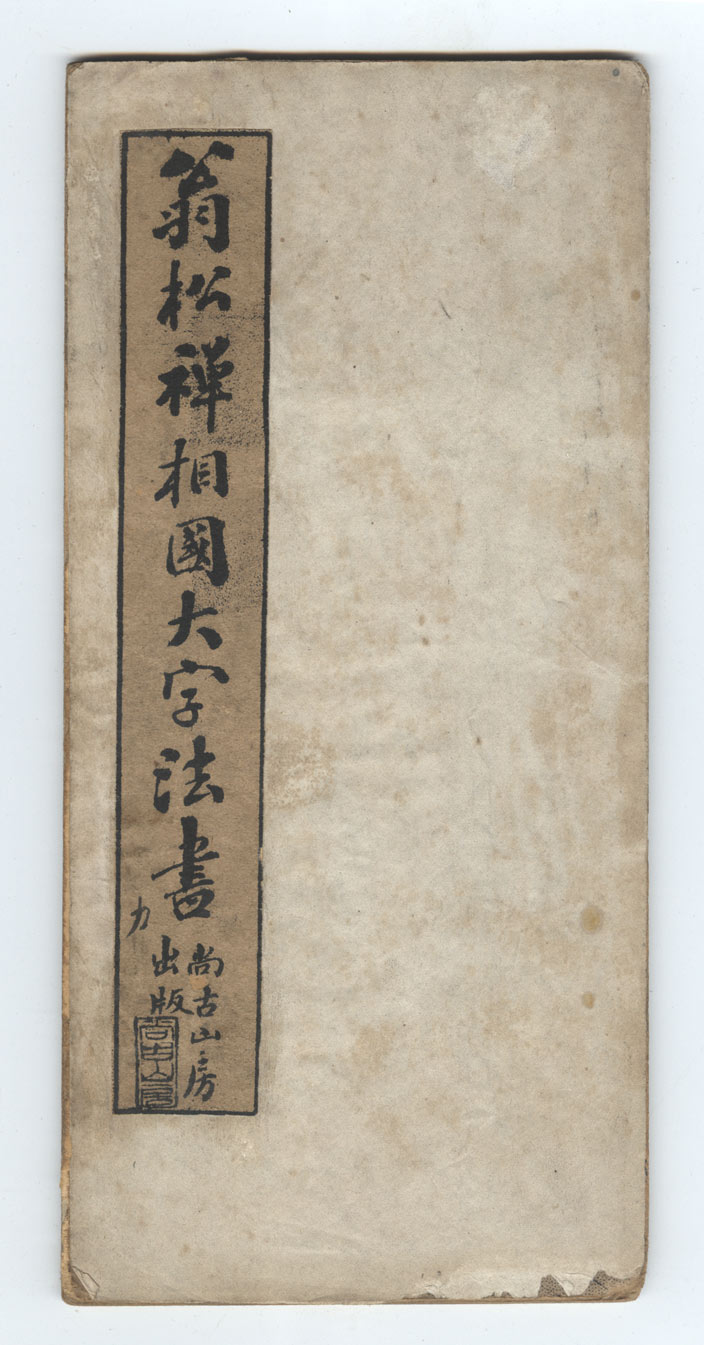 翁松禪相國大字法書
尚古山房
出版
力
尚古山房